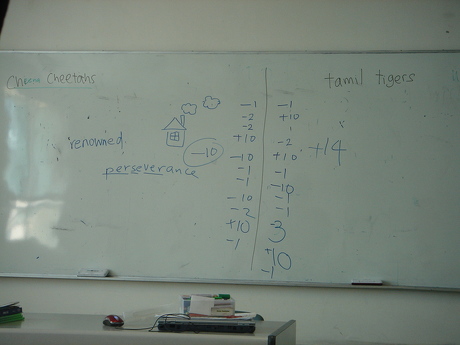 Cheetahs
renowned
perseverance
-10
-1
-2
-2
+10
-10
-1
-1
-10
-2
+10
-1
tamil tigers
-1
+10
-2
+10
-1
-10
-1
-1
-3
+10
-1
+14